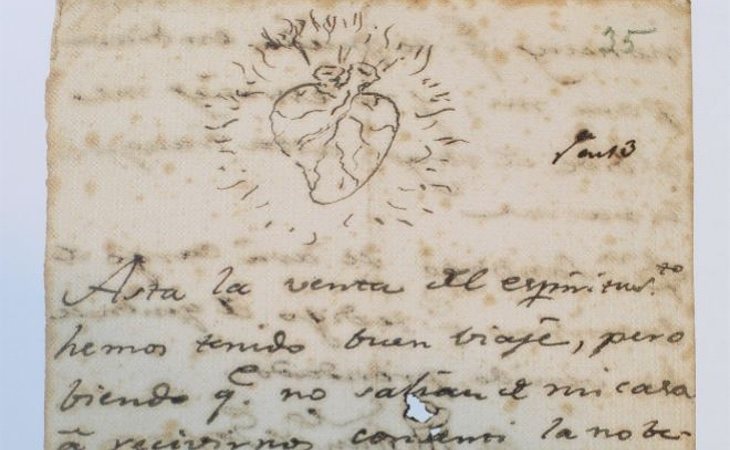 35
Asta la venta del espiritus.to
hemos tenido buen viaje, pero
biendo q.e no salian de mi casa
â recivirnos consenti la nobe-